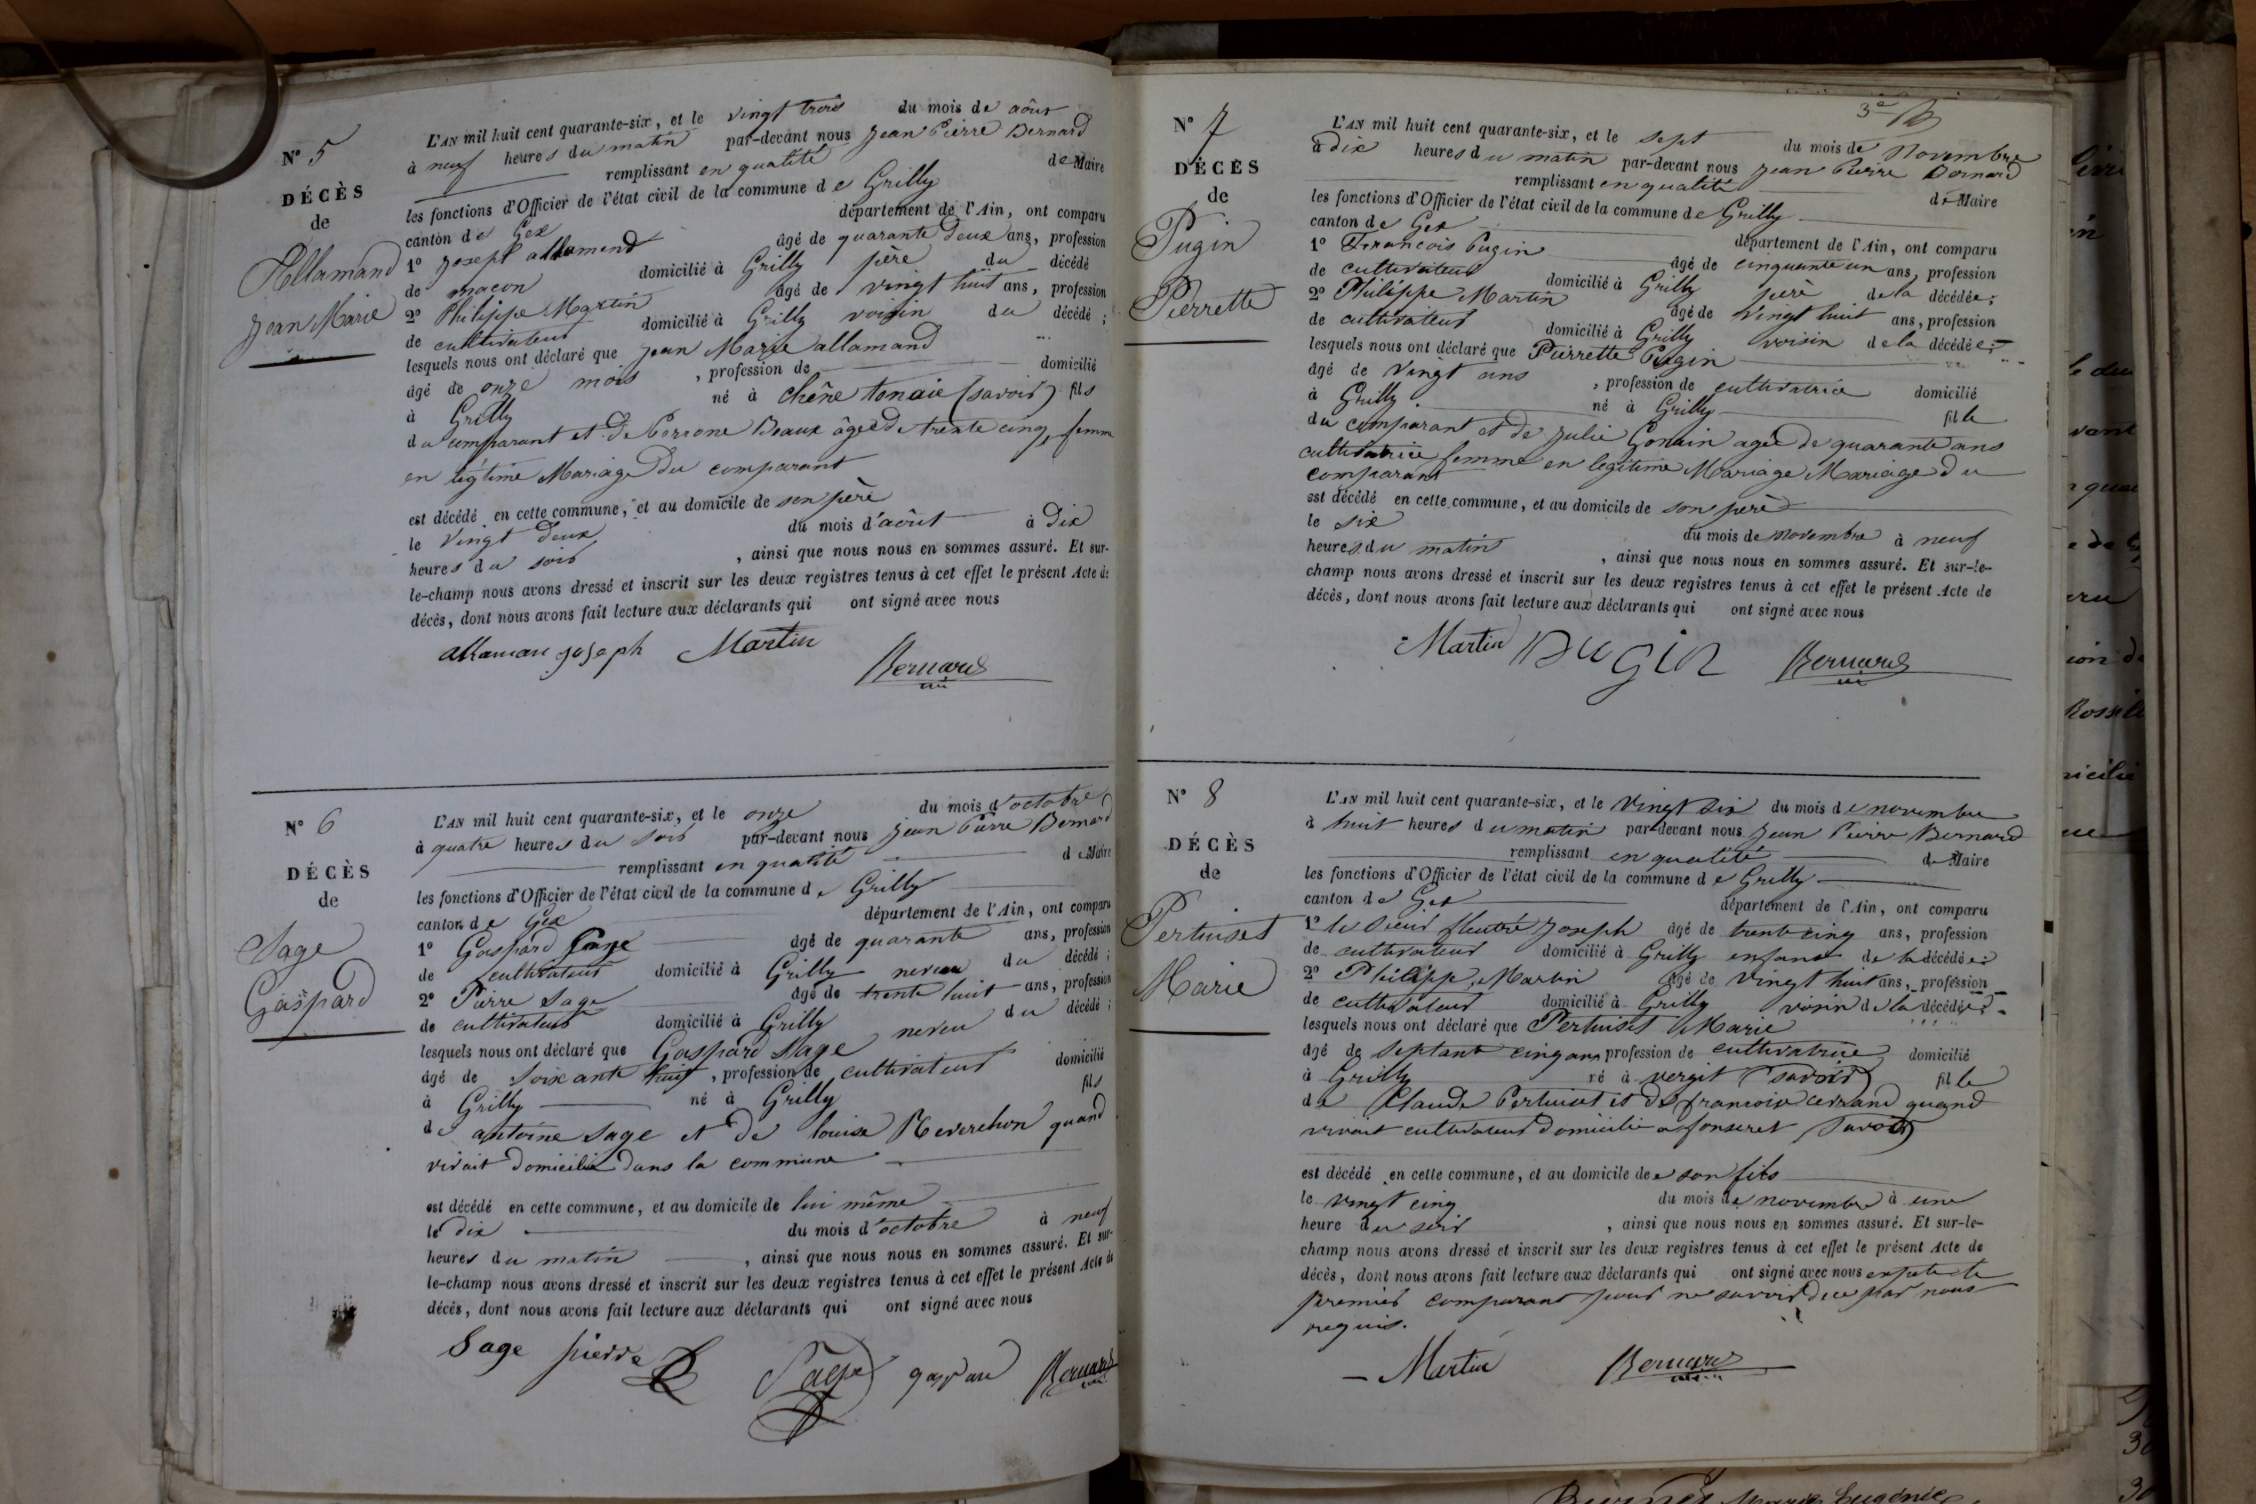 N° 5
DÉCÈS
de
Allamand
Jean Marie
L'AN mil huit cent quarante-six, et le vingt trois du mois de aôut
à neuf heures du matin par-devant nous Jean Pierre Bernard
remplissant en qualité de Maire
les fonctions d'Officier de l'état civil de la commune de Grilly
canton de Gex département de l'Ain, ont comparu
1° Joseph allamand âgé de quarante deux ans, profession
de macon domicilié à Grilly père du décédé
2° Philippe Martin âgé de vingt huit ans, profession
de cultivateur domicilié à Grilly voisin du décédé ;
lesquels nous ont déclaré que Jean Marie allamand
âgé de onze mois , profession de domicilié
à Grilly né à chêne tonaie (savoir) fils
du comparant et de Beaux âgée de trente cinq, femme
en légtime Mariage Du comparant
est décédé en cette commune, et au domicile de son père
le vingt deux du mois d'aôut à dix
heures du soir , ainsi que nous nous en sommes assuré. Et sur-
le-champ nous avons dressé et inscrit sur les deux registres tenus à cet effet le présent Acte de
décès, dont nous avons fait lecture aux déclarants qui ont signé avec nous
allaman joseph Martin Bernard
N° 6
DÉCÈS
de
Sage
Gaspard
L'AN mil huit cent quarante-six, et le onze du mois d'octobre
à quatre heures du soir par-devant nous Jean Pierre Bernard
remplissant en qualité de Maire
les fonctions d'Officier de l'état civil de la commune de Grilly
canton de Gex département de l'Ain, ont comparu
1° Gaspard Sage âgé de quarante ans, profession
de cultivateur domicilié à Grilly neveu du décédé ;
2° Pierre Sage âgé de trente huit ans, profession
de cultivateur domicilié à Grilly neveu du décédé ;
lesquels nous ont déclaré que Gaspard Sage
âgé de soixante huit , profession de cultivateur domicilié
à Grilly né à Grilly fils
de antoine Sage et de louise Reverchon quand
vivait domicilié dans la commune
est décédé en cette commune, et au domicile de lui même
le dix du mois d'octobre à neuf
heures du matin , ainsi que nous nous en sommes assuré. Et sur-
le-champ nous avons dressé et inscrit sur les deux registres tenus à cet effet le présent Acte de
décès, dont nous avons fait lecture aux déclarants qui ont signé avec nous
Sage pierre Sage gaspard Bernard
3e
N° 7
DÉCÈS
de
Pugin
Pierrette
L'AN mil huit cent quarante-six, et le sept du mois de Novembre
à dix heures du matin par-devant nous Jean Pierre Bernard
remplissant en qualité de Maire
les fonctions d'Officier de l'état civil de la commune de Grilly
canton de Gex département de l'Ain, ont comparu
1° Francois Pugin âgé de cinquante un ans, profession
de cultivateur domicilié à Grilly père de la décédée ;
2° Philippe Martin âgé de vingt huit ans, profession
de cultivateur domicilié à Grilly voisin de la décédée ;
lesquels nous ont déclaré que Pierrette Pugin
âgé de vingt ans , profession de cultivatrice domicilié
à Grilly né à Grilly fille
du comparant et de Julie Gonin agée de quarante ans
cultivatrice femme en legitime Mariage Mariage du
comparant
est décédé en cette commune, et au domicile de son père
le six du mois de novembre à neuf
heures du matin , ainsi que nous nous en sommes assuré. Et sur-le-
champ nous avons dressé et inscrit sur les deux registres tenus à cet effet le présent Acte de
décès, dont nous avons fait lecture aux déclarants qui ont signé avec nous
Martin Pugin Bernard
N° 8
DÉCÈS
de
Pertuiset
Marie
L'AN mil huit cent quarante-six, et le vingt six du mois de novembre
à huit heures du matin par-devant nous Jean Pierre Bernard
remplissant en qualité de Maire
les fonctions d'Officier de l'état civil de la commune de Grilly
canton de Gex département de l'Ain, ont comparu
1° le sieur Joseph âgé de trente cinq ans, profession
de cultivateur domicilié à Grilly enfant de la décédée ;
2° Philipp Martin âgé de vingt huit ans, profession
de cultivateur domicilié à Grilly voisin de la décédée ;
lesquels nous ont déclaré que Pertuiset Marie
âgé de septante cinq ans profession de cultivatrice domicilié
à Grilly né à (savoir) fille
de Claude Pertuiset et de quand
vivait cultivateur domicilié a (savoir)
est décédé en cette commune, et au domicile de son fils
le vingt cinq du mois de novembre à une
heure du soir , ainsi que nous nous en sommes assuré. Et sur-le-
champ nous avons dressé et inscrit sur les deux registres tenus à cet effet le présent Acte de
décès, dont nous avons fait lecture aux déclarants qui ont signé avec nous le
premier comparant pour ne savoir par nous
requis.
Martin Bernard